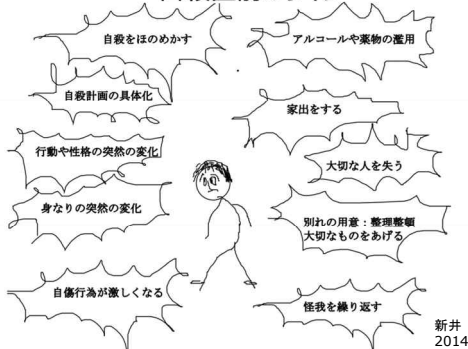 自殺をほのめかす
自殺計画の具体化
行動や性格の突然の変化
身なりの突然の変化
自傷行為が激しくなる
アルコールや薬物の濫用
家出をする
大切な人を失う
別れの用意：整理整頓
大切なものをあげる
怪我を繰り返す
新井
2014